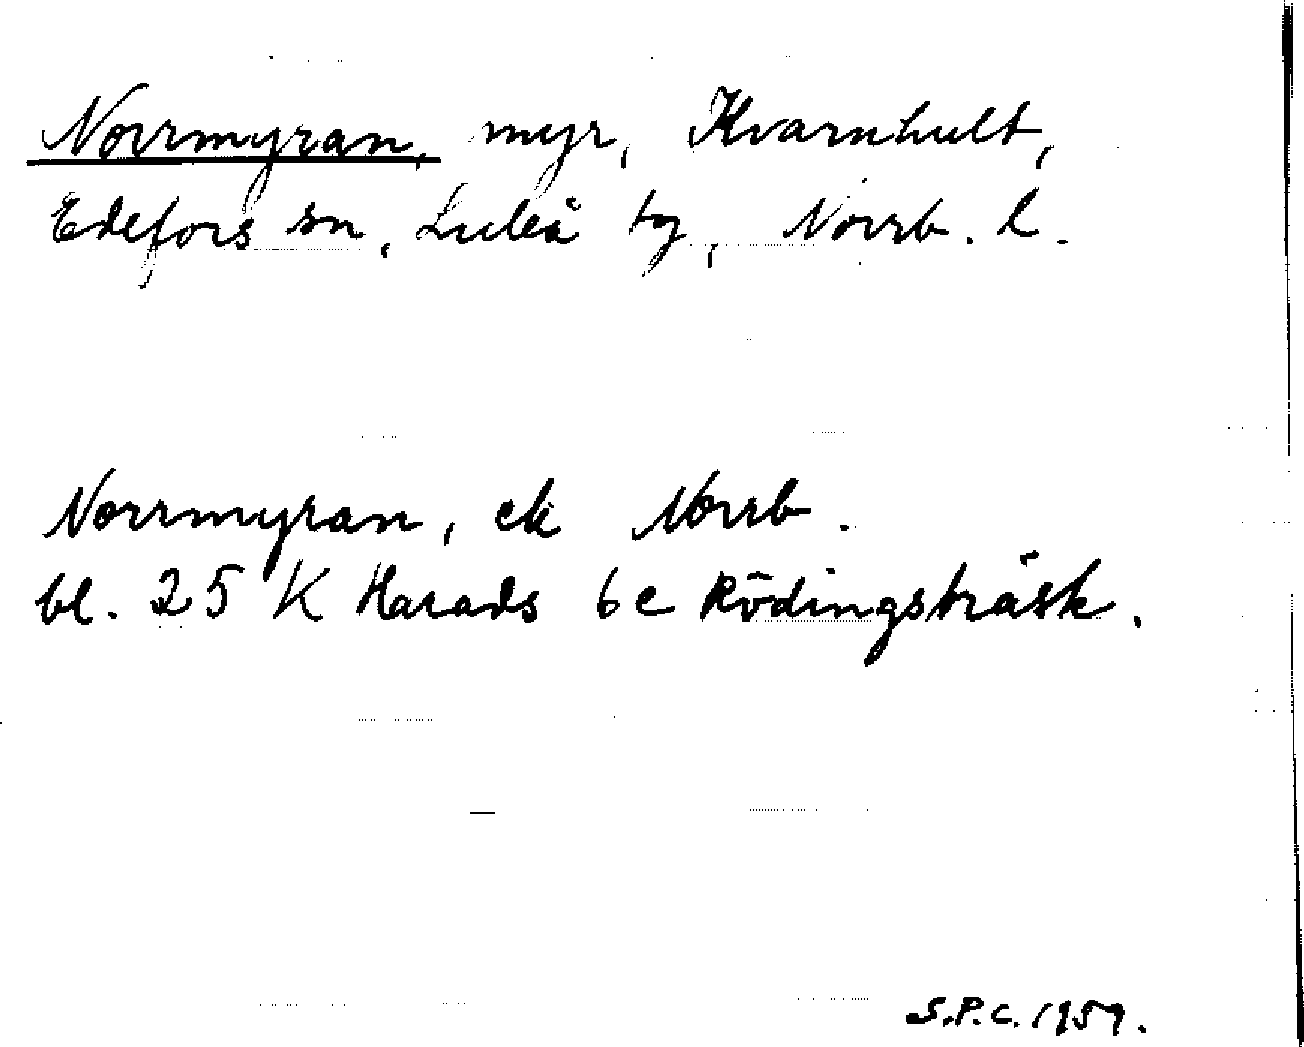 Norrmyran, myr, Kvarnhult,
Edefors sn, Luleå tg, Norrb. l.
Norrmyran, ek Norrb.
bl. 25 K Harads 6c Rödingsträsk.
S.P.C. 1959.